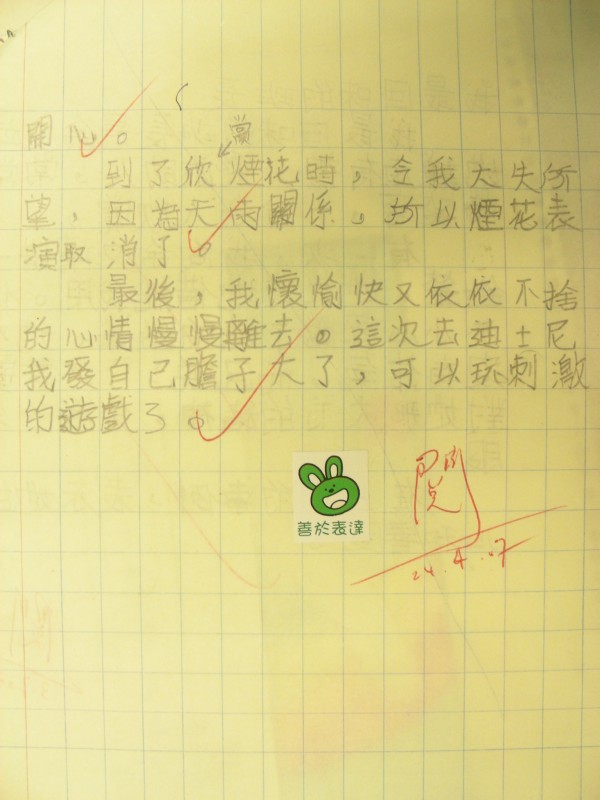 開心。
賞
到了欣煙花時，令我大失所
望，因為天雨關係，所以煙花表
演取消了。
最後，我懷愉快又依依不捨
的心情慢慢離去。這次去迪士尼
我發自己膽子大了，可以玩刺激
的遊戲了。
善於表達
閱
24.4.07